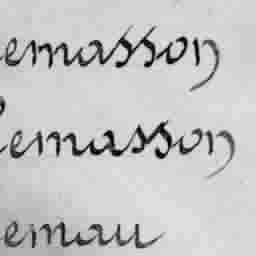 emasson
Lemasson
emau